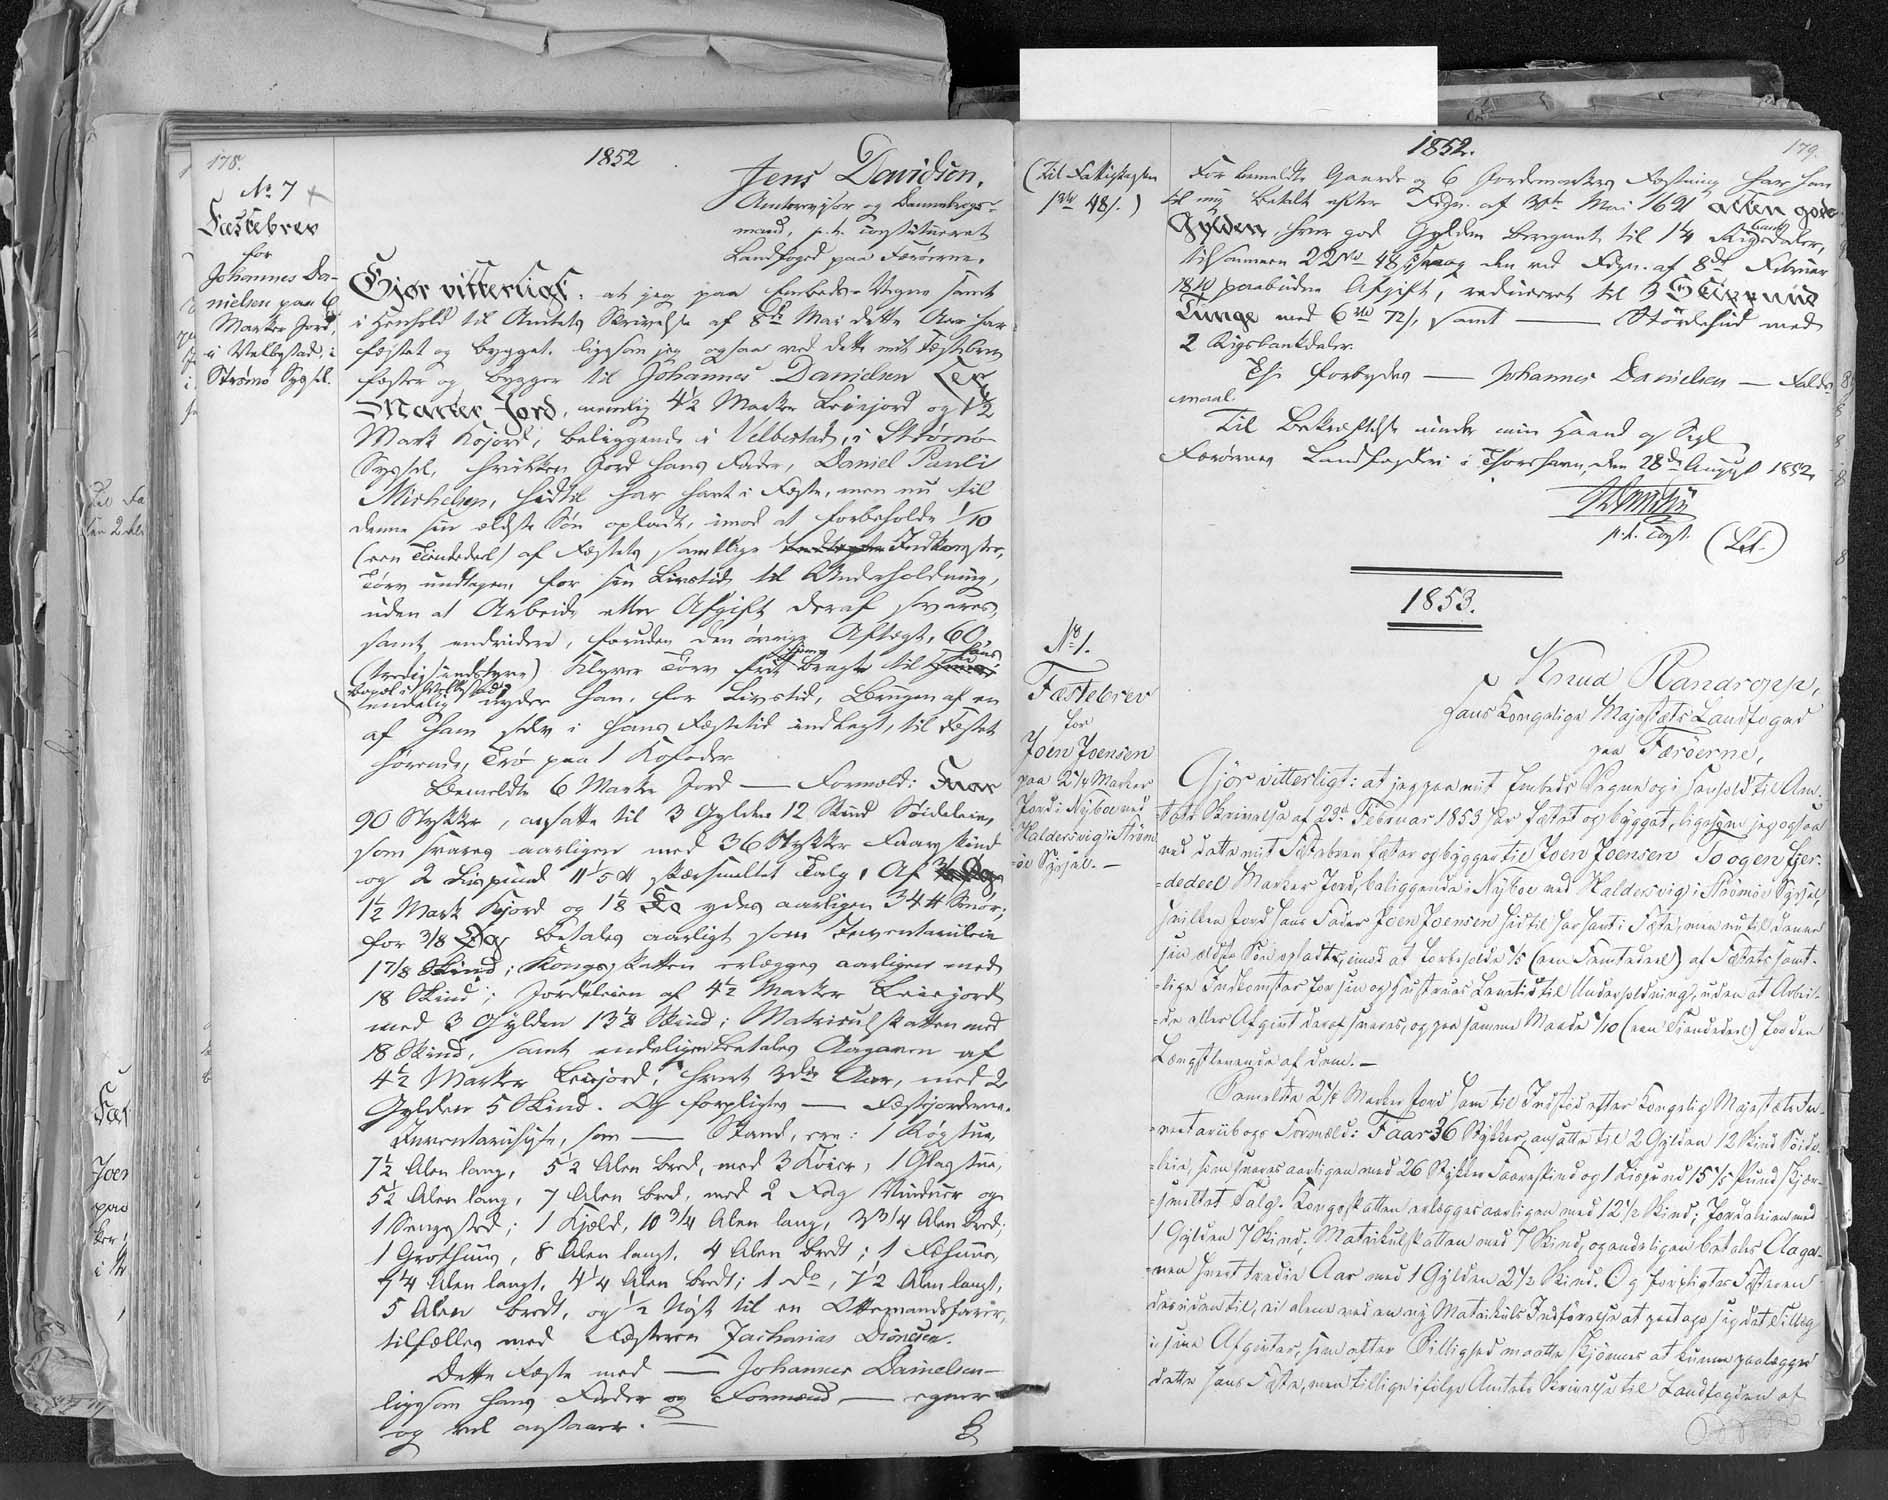 178.
1852
No 7
Fæstebrev
for
Johannes Da-
nielsen paa 6
Marker Jord,
i Velbestad, i
Strømø Syssel.
Jens Davidsen,
Amtsrevisor og Dannebrogs-
mand, p.t. constitueret
Landfoged paa Færöerne,
Gjør vitterligt: at jeg paa Embeds-Vegne samt
i Henhold til Amtets Skrivelse af 8de Mai dette Aar har
fæstet og bygget, ligesom jeg ogsaa ved dette mit Fæstebrev
fæster og bygger til Johannes Danielsen Sex
Marker Jord, nemlig 4½ Marker Leiejord og 1½
Mark Kojord, beliggende i Velbestad, i Strømø
Syssel, hvilken Jord hans Fader, Daniel Pauli
Michelsen, hidtil har havt i Fæste, men nu til
denne sin ældste Søn opladt, imod at forbeholde 1/10
(een Tiendedeel) af Fæstets samtlige Indkomster,
Tørv undtagen, for sin Livstid til Underholdning,
uden at Arbeide eller Afgift deraf svares,
samt endvidere, foruden den øvrige Aftægt, 60
(tredsindstyve) Klyver Tørv frit bragte til hans
Bopæl i Velbestad;
endelig nyder han, for Livstid, Brugen af en
af ham selv i hans Fæstetid indlagt, til Fæstet
hørende, Trø paa 1 Kofoder
Bemeldte 6 Marker Jord — Formeld: Faar
90 Stykker, ansatte til 3 Gylden 12 Skind Söideleie,
som svares aarligen med 36 Stykker Faareskind
og 2 Lispund 11 1/5 ℔ skiærsmeltet Talg, Af
1½ Mark Kojord og 1 1/8 Ko ydes aarligen 34 ℔ Smør;
for 3/8 Ko betales aarligt som Inventarieleie
1 7/8 Skind; Kongsskatten erlægges aarligen med
18 Skind; Jordeleien af 4½ Marker Leiejord
med 3 Gylden 13½ Skind; Matriculskatten med
18 Skind, samt endeligen betales Aagaven af
4½ Marker Leiejord, hvert 3die Aar, med 2
Gylden 5 Skind. Og forpligtes — Fæstejorderne.
Inventariihuse, som — Stand, ere: 1 Røgstue,
7½ Alen lang, 5½ Alen bred, med 3 Kover, 1 Glasstue,
5½ Alen lang, 7 Alen bred, med 2 Fag Vinduer og
1 Sengested; 1 Hjald, 10 3/4 Alen lang, 3 3/4 Alen bred;
1 Grothuus, 8 Alen langt, 4 Alen bredt; 1 Fæhuus,
7 1/4 Alen langt, 4 1/4 Alen bredt; 1 do, 7½ Alen langt,
5 Alen bredt, og ½ Nøst til en Ottemandsfarer,
tilfælles med Fæsteren Zacharias Dionesen.
Dette Fæste med — Johannes Danielsen —
ligesom hans Fader og Formænd — egner
og vel anstaaer. —
1852.
179.
(Til Fattigkassen
1 Rd 48 s.)
For bemeldte Gaards og 6 Jordemarkers Fæstning har han
til mig betalt efter Frdn. af 30te Mai 1691 atten gode
Gylden, hver god Gylden beregnet til 1¼ Rigsbankdaler,
tilsammen 22 Rd 48 s, og den ved Frdn. af 8de Februar
1810 paabudne Afgift, reduceret til 3 Skippund
Tunge med 6 Rd 72 s, samt — Störkehud med
2 Rigsbankdaler.
Thi forbydes — Johannes Danielsen — Falds-
maal.
Til Bekræftelse under min Haand og Segl
Færöernes Landfogderi i Thorshavn, den 28de August 1852.
p.t. const. (L.S.)
1853.
No 1.
Fæstebrev
for
Joen Joensen
paa 2¼ Marker
Jord i Nyboe ved
Haldersvig i Ström-
øe Syssel. —
Knud Randropp,
Hans Kongelige Majestæts Landfoged
paa Færöerne,
Gjör vitterligt: at jeg paa mit Embeds Vegne og i Henhold til Am-
tets Skrivelse af 23de Februar 1853 har fæstet og bygget, ligesom jeg ogsaa
ved dette mit Fæstebrev fæster og bygger til Joen Joensen To og en fjer-
-dedeel Marker Jord, beliggende i Nyboe ved Haldersvig i Strömöe Syssel,
hvilken Jord hans Fader Joen Joensen hidtil har havt i Fæste, men nu til denne
sin ældste Sön opladt, imod at forbeholde 1/5 (een Femtedeel) af Fæstets samt-
-lige Indkomster for sin og Hustrues Levetid til Underholdning, uden at Arbei-
-de eller Afgivt deraf svares, og paa samme Maade 1/10 (een Tiendedeel) for den
Længstlevende af dem. —
Bemeldte 2¼ Marker Jord har til Indsted efter Kongelig Majestæts In-
-ventariibogs Formeld: Faar 36 Stykker, ansatte til 2 Gylden 12 Skind Söide-
-leie, som svares aarligen med 26 Stykker Faareskind og 1 Lispund 15 1/5 Pund skjær-
-smeltet Talg. Kongsskatten erlægges aarligen med 12½ Skind; Jordeleien med
1 Gylden 7 Skind; Matrikulskatten med 7 Skind, og endeligen betales Aaga-
-ven hvert tredie Aar med 1 Gylden 2½ Skind. Og forpligtes Fæsteren
desuden til, ei alene ved en ny Matrikuls Indförelse at paatage sig det Tillæg
i sine Afgivter, som efter Billighed maatte skjönnes at kunne paalægges
dette hans Fæste, men tillige ifölge Amtets Skrivelse til Landfogden af